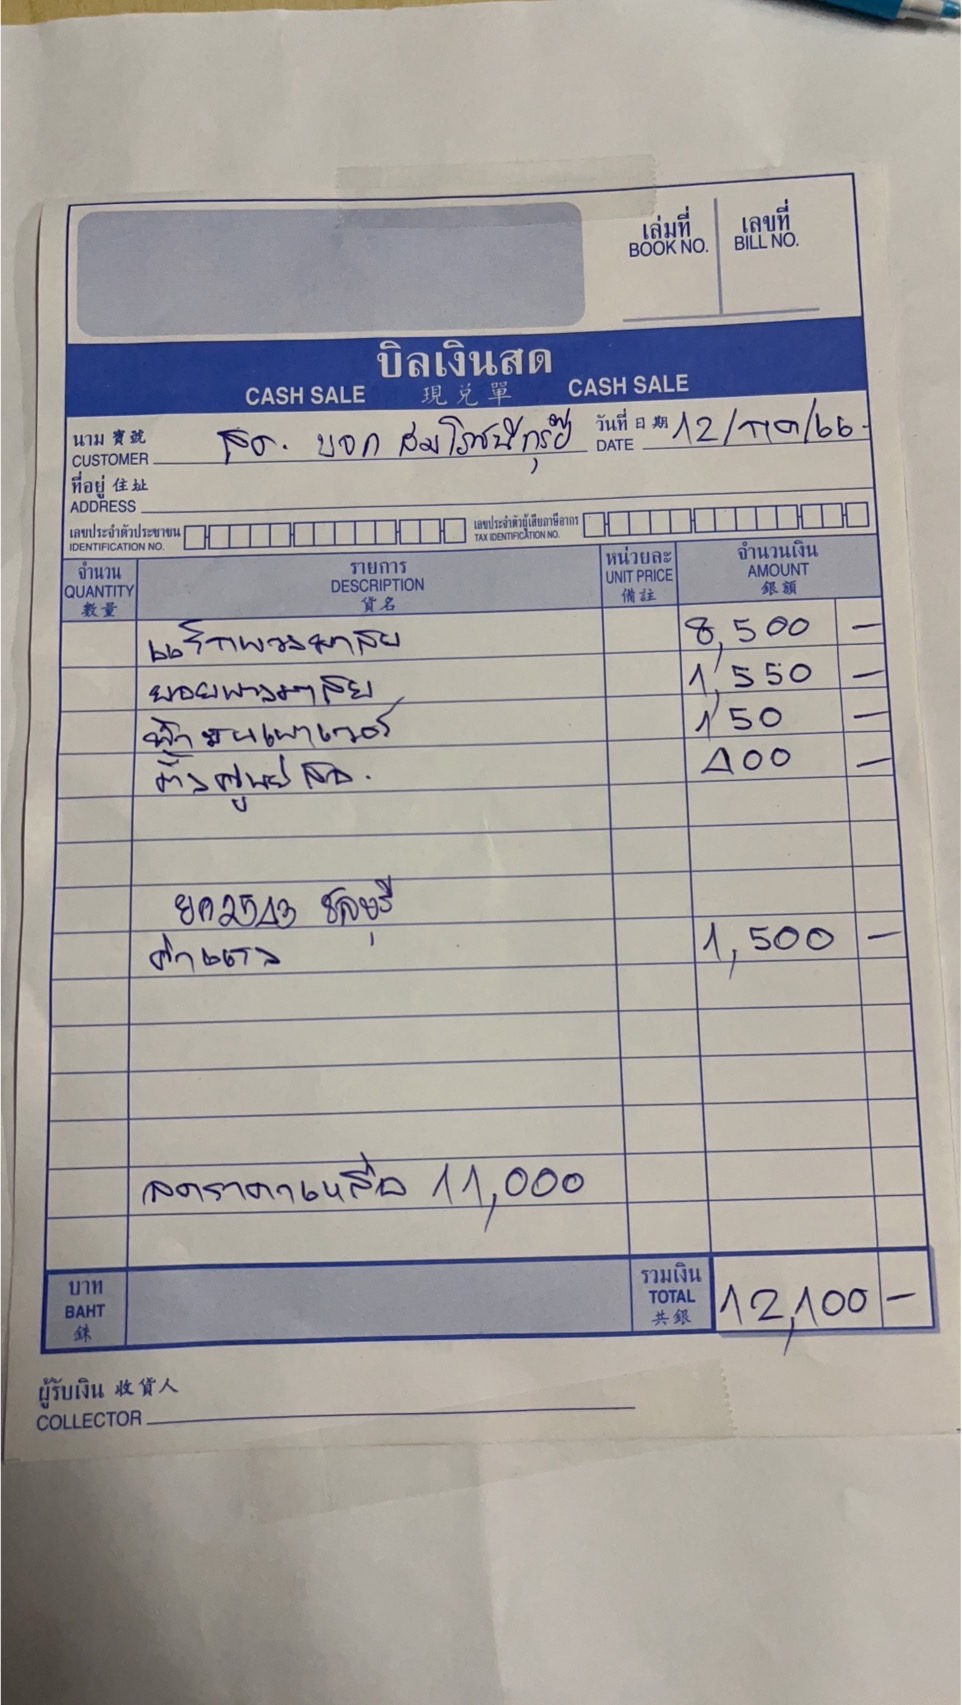 เล่มที่ เลขที่
BOOK NO. BILL NO.
บิลเงินสด
CASH SALE 現兌單 CASH SALE
นาม 寶號 วันที่ 日期 12/กค/66
CUSTOMER สด. บจก DATE
ที่อยู่ 住址
ADDRESS
เลขประจำตัวประชาชน เลขประจำตัวผู้เสียภาษีอากร
IDENTIFICATION NO. TAX IDENTIFICATION NO.
จำนวน รายการ หน่วยละ จำนวนเงิน
QUANTITY DESCRIPTION UNIT PRICE AMOUNT
數量 貨名 備註 銀額
แร็กพวงมาลัย 8,500 –
ยอยพวงมาลัย 1,550 –
150 –
ตั้งศูนย์ 400 –
ยค2543 ชลบุรี
ค่าแรง 1,500 –
ลดราคาเหลือ 11,000
บาท รวมเงิน
BAHT TOTAL 12,100 –
銖 共銀
ผู้รับเงิน 收貨人
COLLECTOR